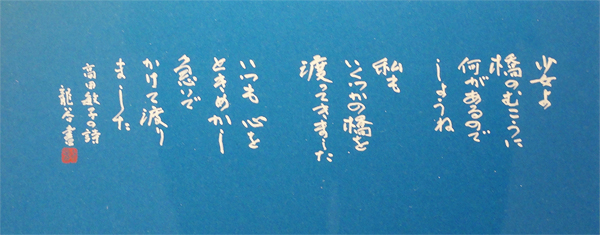 少女よ
橋のむこうに
何があるので
しょうね
私も
いくつかの橋を
渡ってきました
いつも 心を
ときめかし
急いで
かけて渡り
ました
高田敏子の詩
龍谷書